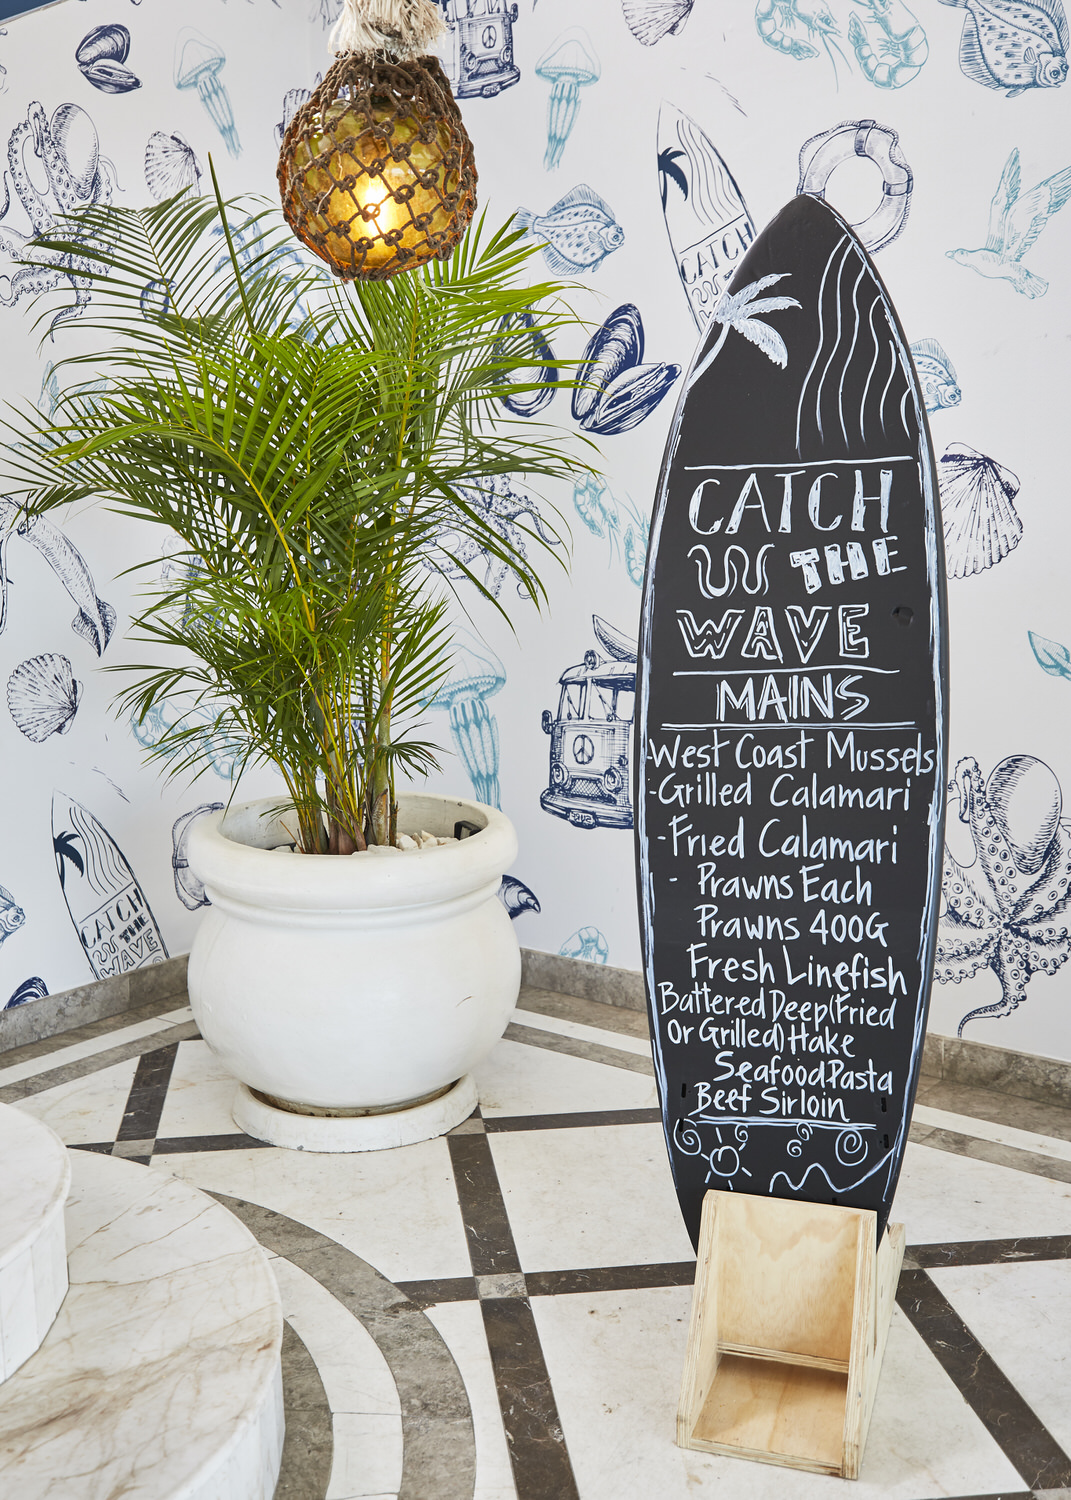 CATCH
CATCH
THE
WAVE
MAINS
-West Coast Mussels
-Grilled Calamari
-Fried Calamari
- Prawns Each
Prawns 400G
Fresh Linefish
Battered Deep(Fried
Or Grilled) Hake
Seafood Pasta
Beef Sirloin
CATCH
THE
WAVE